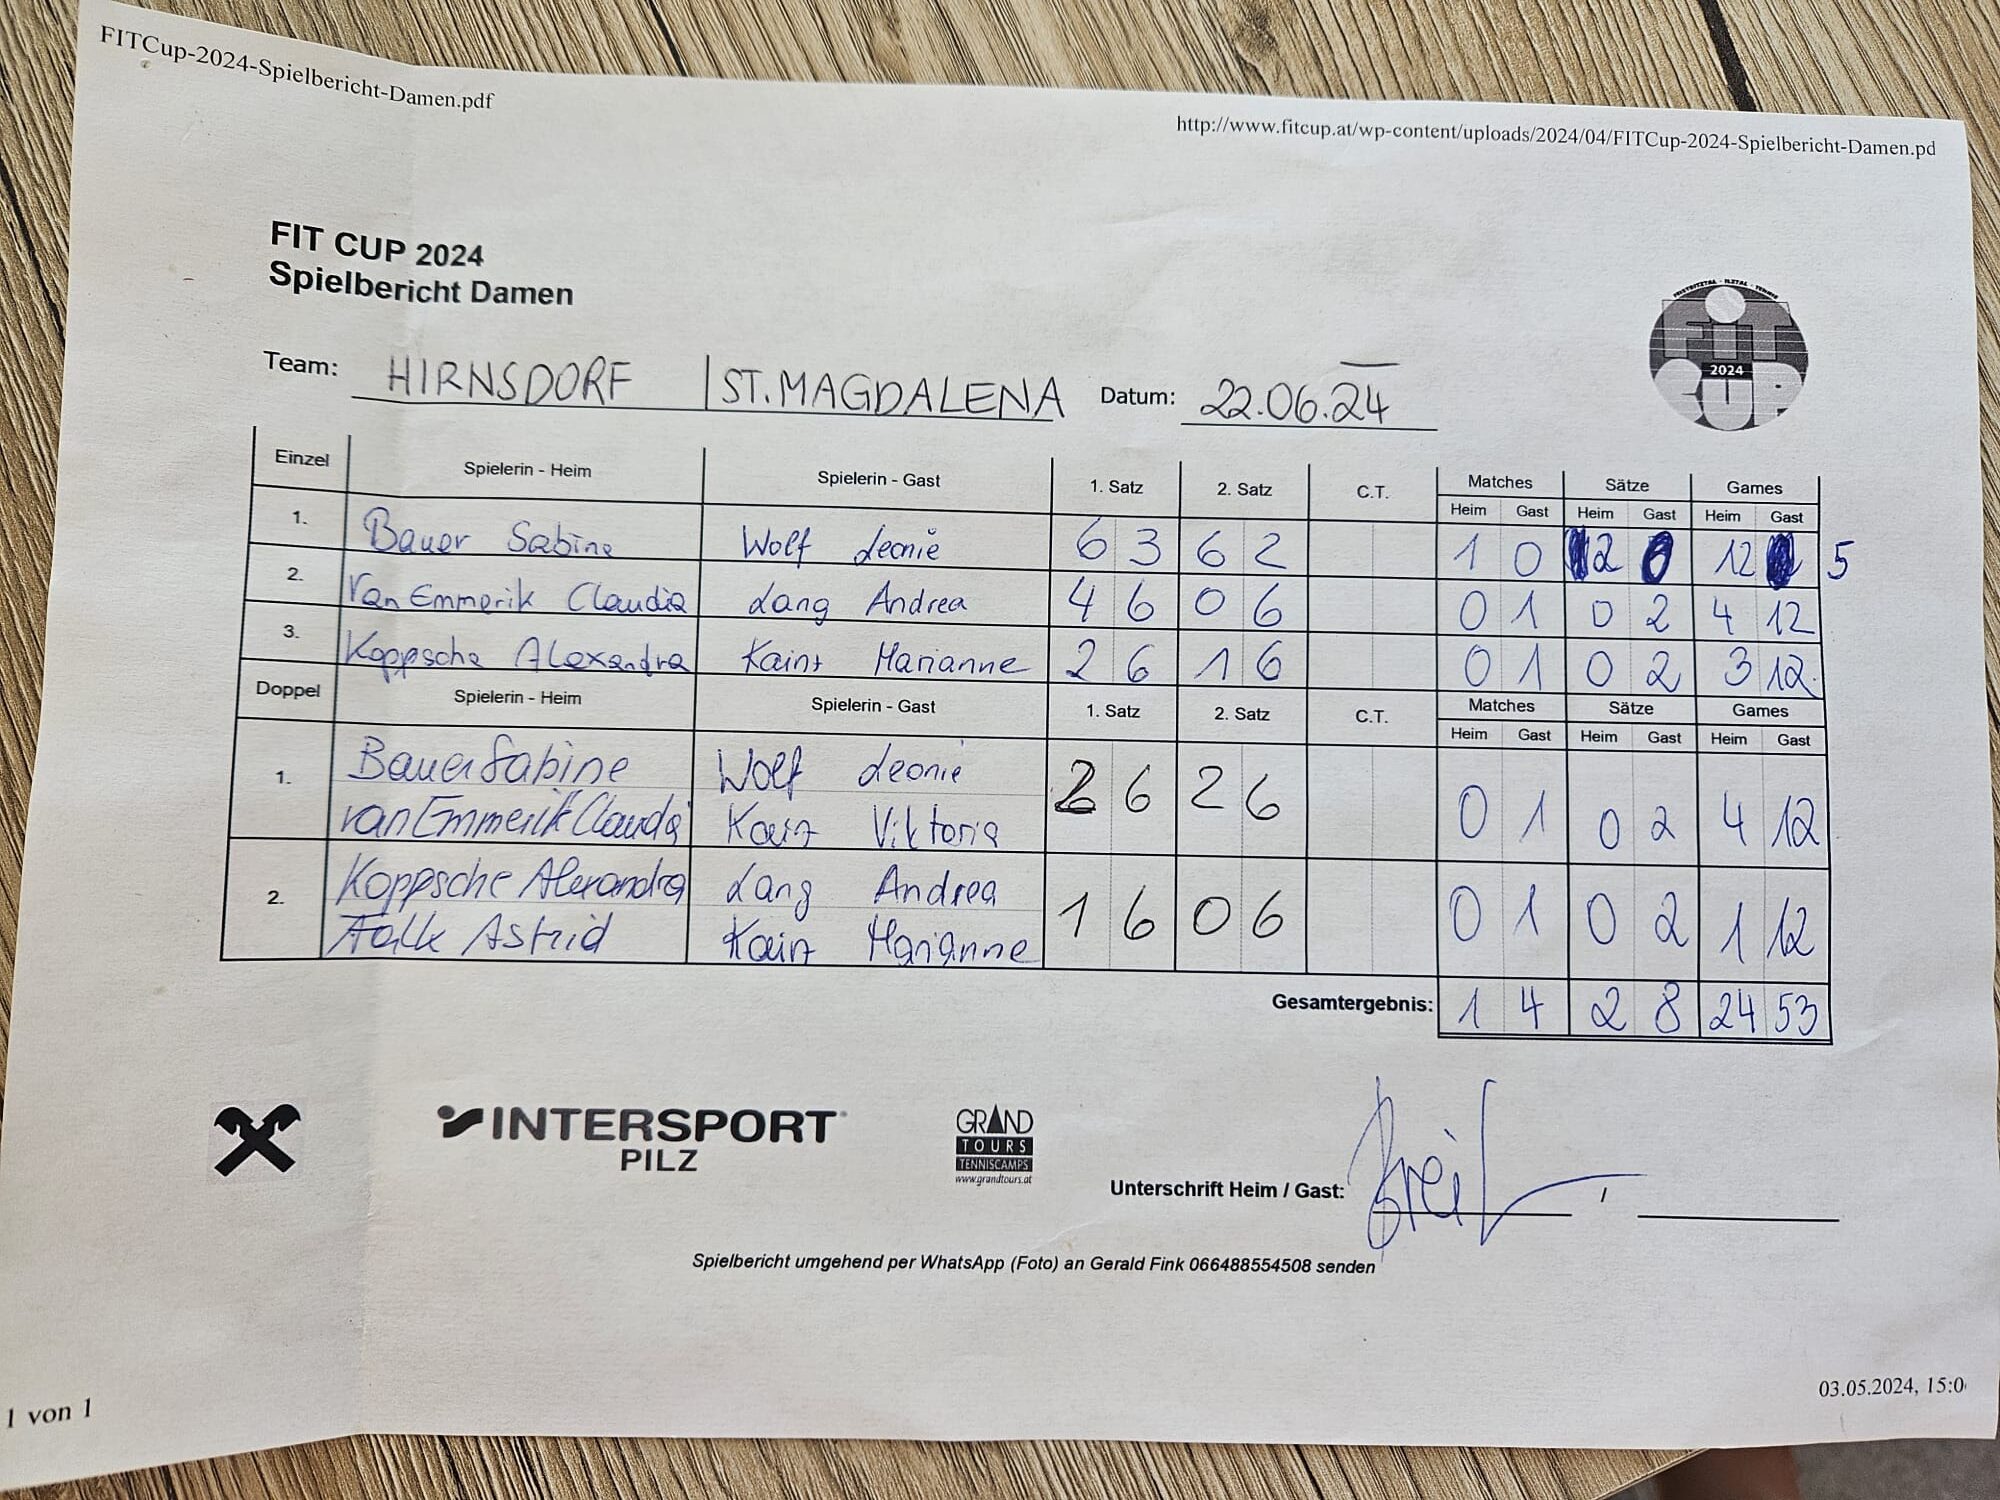 FITCup-2024-Spielbericht-Damen.pdf
http://www.fitcup.at/wp-content/uploads/2024/04/FITCup-2024-Spielbericht-Damen.pd
FIT CUP 2024
Spielbericht Damen
FEISTRITZTAL - ILZTAL - TENNIS
FiT
2024
CUP
Team: HIRNSDORF | ST. MAGDALENA Datum: 22.06.24
Einzel Spielerin - Heim Spielerin - Gast 1. Satz 2. Satz C.T. Matches Sätze Games
Heim Gast Heim Gast Heim Gast
1. Bauer Sabine Wolf Leonie 6 3 6 2 1 0 2 0 12 5
2. Van Emmerik Claudia Lang Andrea 4 6 0 6 0 1 0 2 4 12
3. Koppsche Alexandra Kainz Marianne 2 6 1 6 0 1 0 2 3 12
Doppel Spielerin - Heim Spielerin - Gast 1. Satz 2. Satz C.T. Matches Sätze Games
Heim Gast Heim Gast Heim Gast
1. Bauer Sabine Wolf Leonie 2 6 2 6 0 1 0 2 4 12
van Emmerik Claudia Kainz Viktoria
2. Koppsche Alexandra Lang Andrea 1 6 0 6 0 1 0 2 1 12
Falk Astrid Kainz Marianne
Gesamtergebnis: 1 4 2 8 24 53
INTERSPORT
PILZ
GRAND
TOURS
TENNISCAMPS
www.grandtours.at
Unterschrift Heim / Gast: /
Spielbericht umgehend per WhatsApp (Foto) an Gerald Fink 066488554508 senden
1 von 1
03.05.2024, 15:0